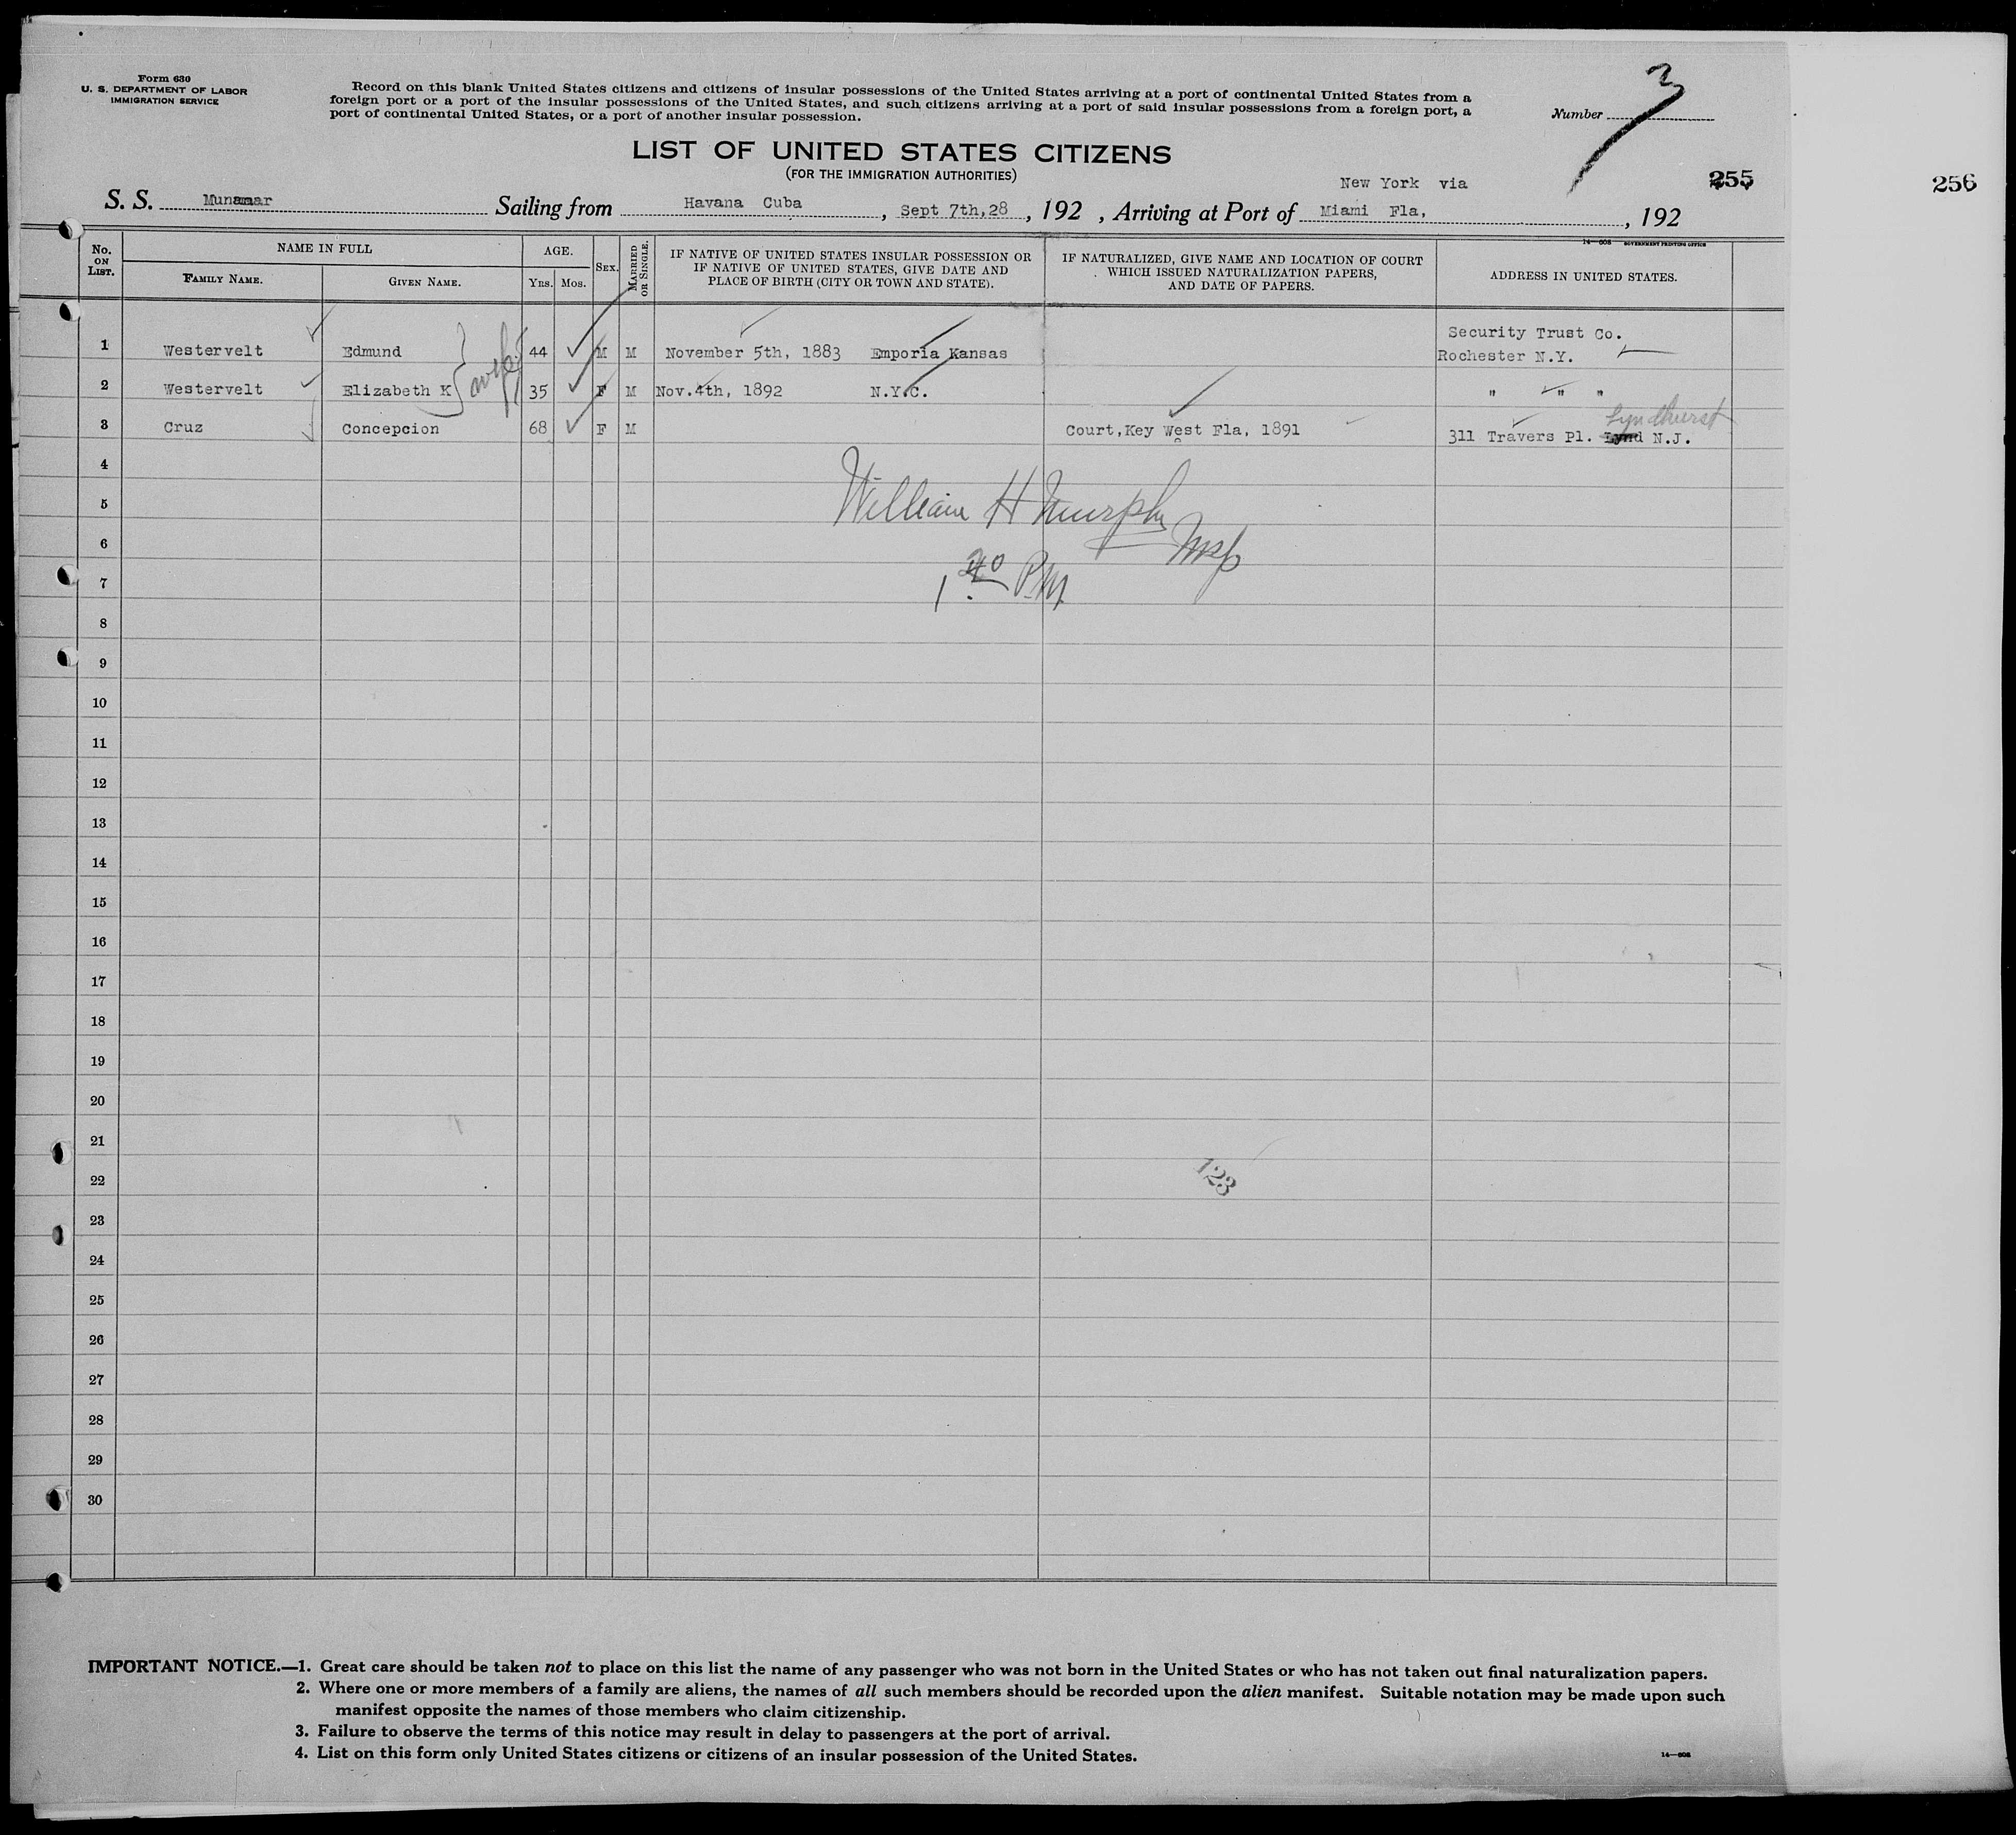 Form 630
U. S. DEPARTMENT OF LABOR
IMMIGRATION SERVICE
Record on this blank United States citizens and citizens of insular possessions of the United States arriving at a port of continental United States from a
foreign port or a port of the insular possessions of the United States, and such citizens arriving at a port of said insular possessions from a foreign port, a
port of continental United States, or a port of another insular possession.
Number 3
LIST OF UNITED STATES CITIZENS
(FOR THE IMMIGRATION AUTHORITIES)
255
256
New York via
S. S. Munamar Sailing from Havana Cuba, Sept 7th,28, 192 , Arriving at Port of Miami Fla, , 192
14—608 GOVERNMENT PRINTING OFFICE
No. ON LIST.
NAME IN FULL
FAMILY NAME.
GIVEN NAME.
AGE.
YRS. MOS.
SEX.
MARRIED OR SINGLE.
IF NATIVE OF UNITED STATES INSULAR POSSESSION OR
IF NATIVE OF UNITED STATES, GIVE DATE AND
PLACE OF BIRTH (CITY OR TOWN AND STATE).
IF NATURALIZED, GIVE NAME AND LOCATION OF COURT
WHICH ISSUED NATURALIZATION PAPERS,
AND DATE OF PAPERS.
ADDRESS IN UNITED STATES.
Security Trust Co.
1 Westervelt Edmund 44 M M November 5th, 1883 Emporia Kansas Rochester N.Y.
wife
2 Westervelt Elizabeth K 35 F M Nov.4th, 1892 N.Y.C. " " "
Lyndhurst
3 Cruz Concepcion 68 F M Court,Key West Fla, 1891 311 Travers Pl. Lynd N.J.
4
William H Murphy
5
6
7
1.40 P.M.
8
9
10
11
12
13
14
15
16
17
18
19
20
21
22
123
23
24
25
26
27
28
29
30
IMPORTANT NOTICE.—1. Great care should be taken not to place on this list the name of any passenger who was not born in the United States or who has not taken out final naturalization papers.
2. Where one or more members of a family are aliens, the names of all such members should be recorded upon the alien manifest. Suitable notation may be made upon such
manifest opposite the names of those members who claim citizenship.
3. Failure to observe the terms of this notice may result in delay to passengers at the port of arrival.
4. List on this form only United States citizens or citizens of an insular possession of the United States.
14—608